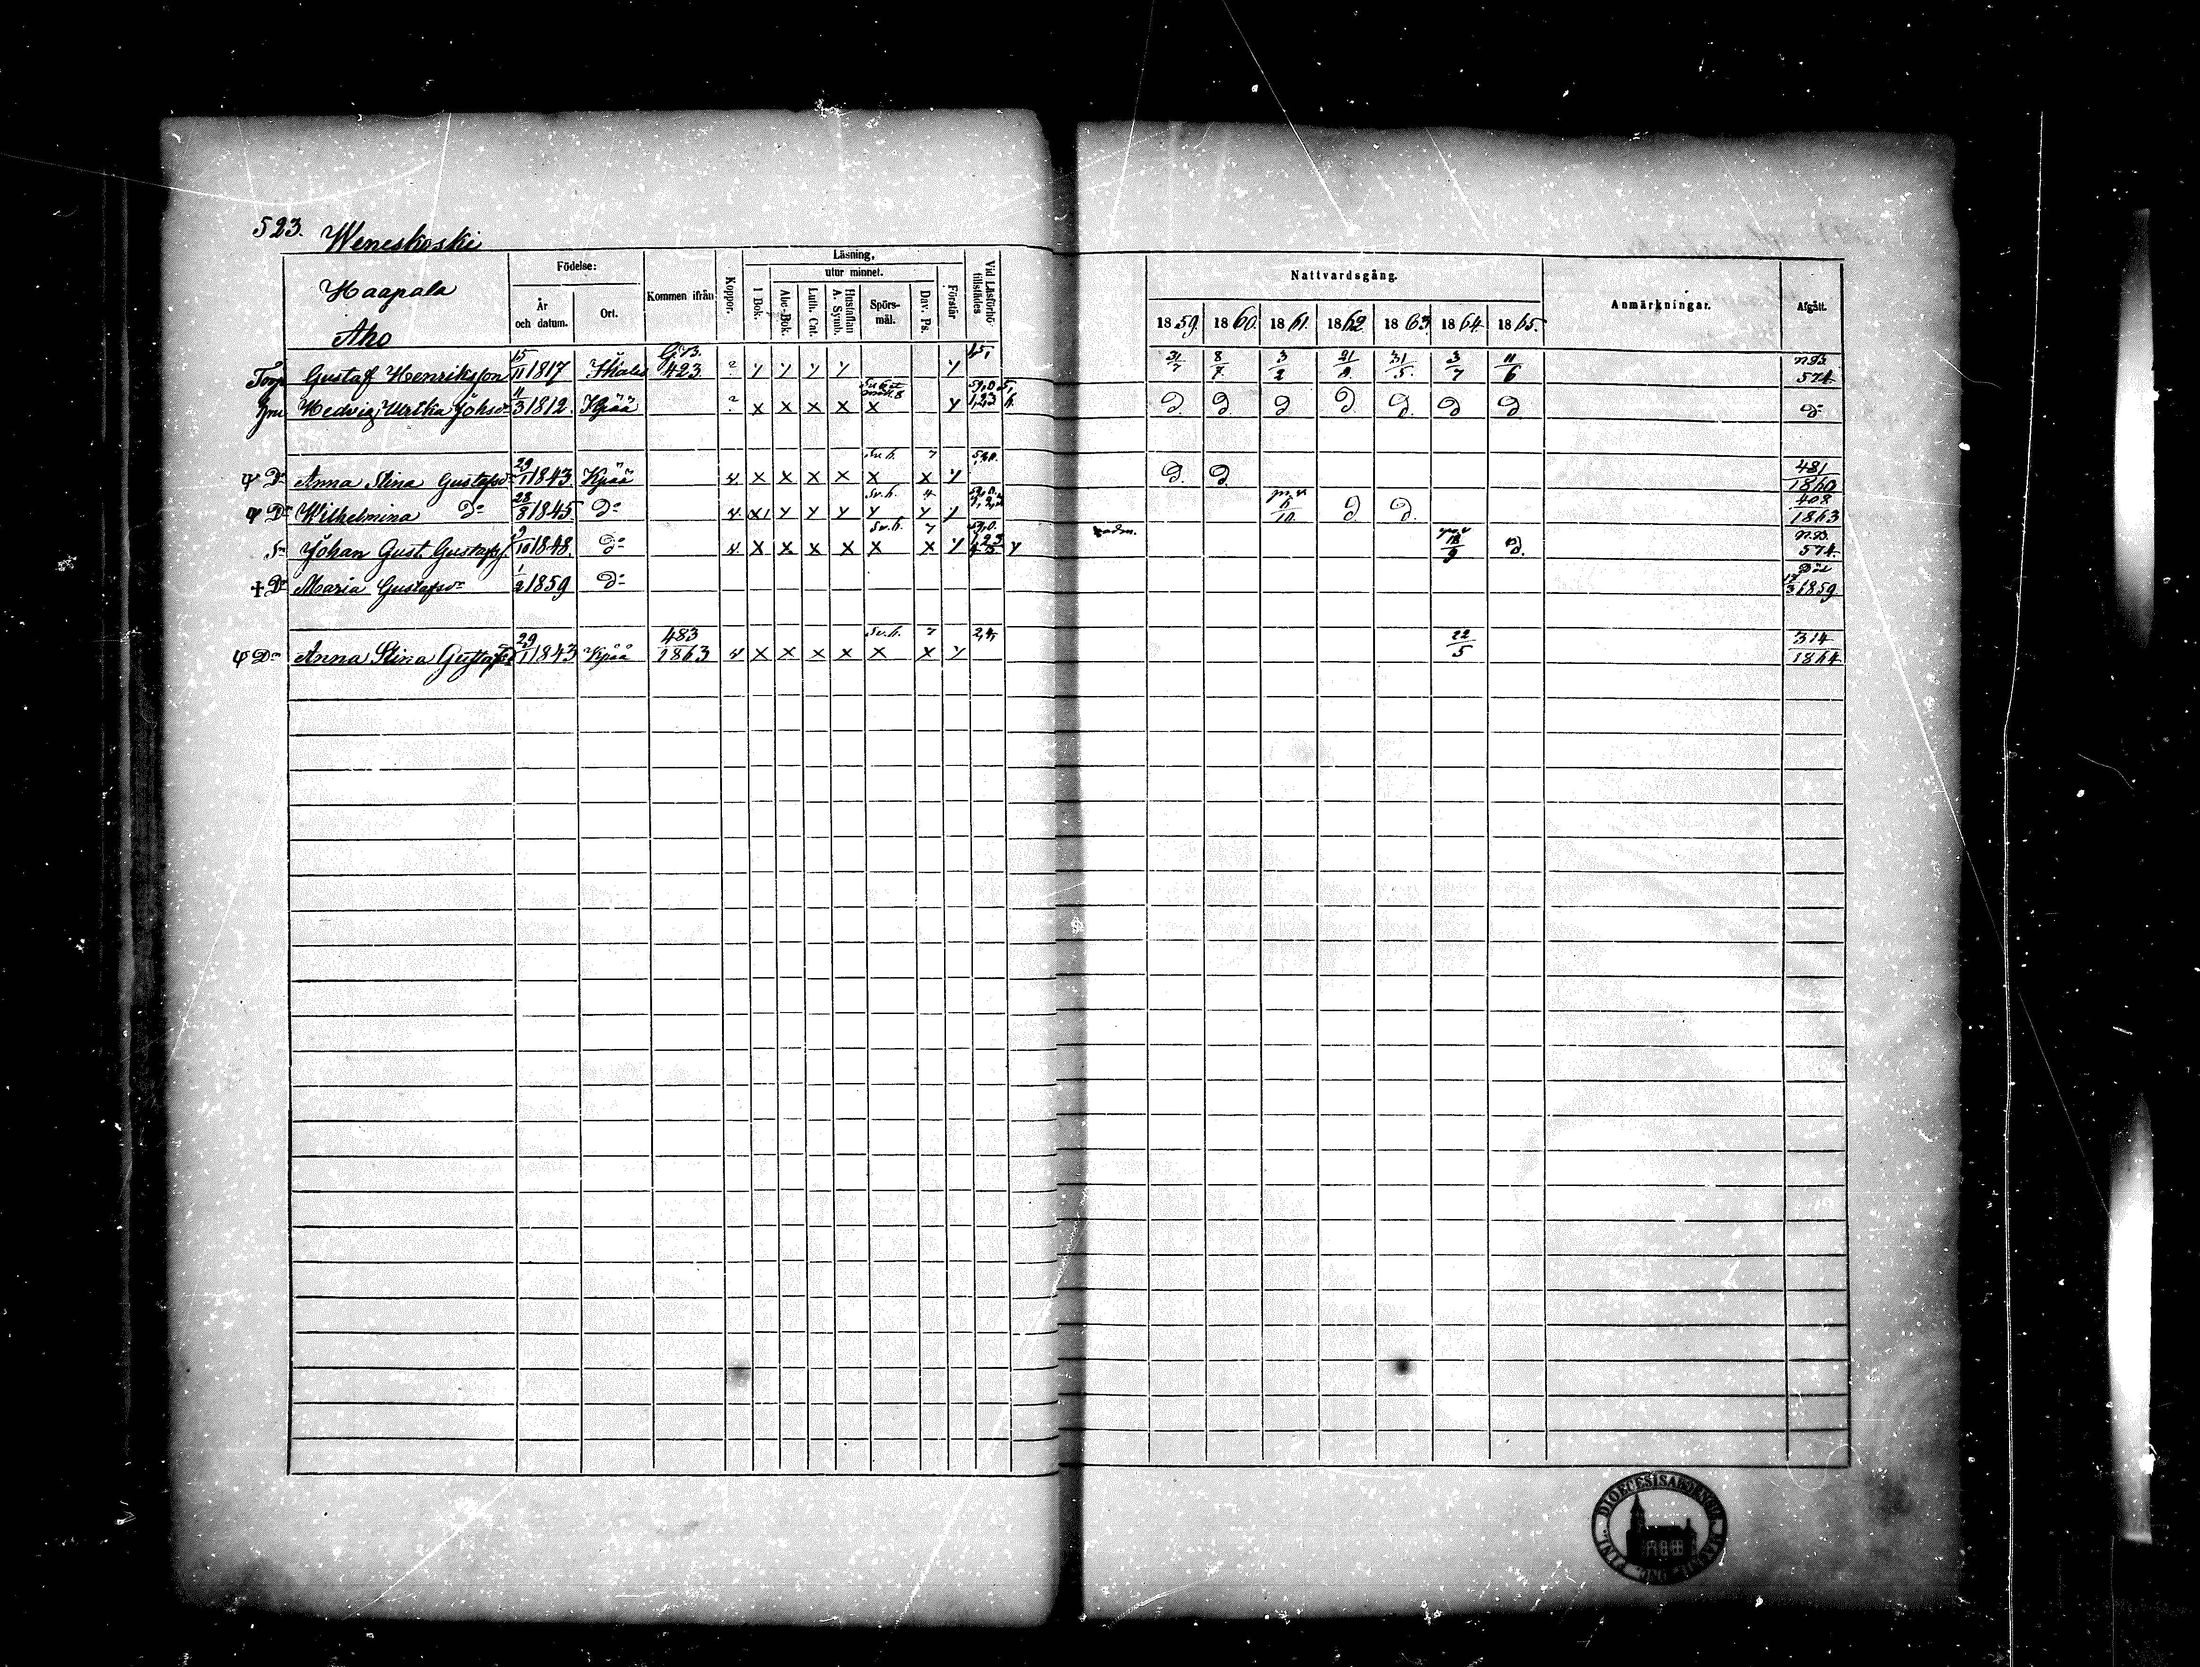 523. Weneskoski
Haapala
Aho
Födelse:
År och datum.
Ort.
Kommen ifrån
Koppor.
Läsning,
utur minnet.
I Bok.
Abc-Bok.
Luth. Cat.
Hustaflan A. Symb.
Spörsmål.
Dav. Ps.
Förstår
Vid Läsförhö tillstädes
Nattvardsgång.
1859. 1860. 1861. 1862. 1863. 1864. 1865.
Anmärkningar.
Afgått.
Torp Gustaf Henriksson 15/11 1817 423 ? y y y y y 31/7 8/7 3/2 31/5 3/7 11/6 574
Hedvig Ulrika Johsdr 11/3 1812. Kpää ? x x x x x y D. D. D D D. D D Do
D Anna Stina Gustafsdr 29/1 1843 Kpää v x x x x x x y D. D. 481/1860
D Wilhelmina Do 28/8 1845 Do v x y y y y y y 6/10 D D. 408/1863
Sn Johan Gust. Gustafss 9/10 1848. Do v x x x x x x y y adm. 18/9 D. 574.
† Dr Maria Gustafsdr 1/2 1859 Do Död 17/3 1859
Dr Anna Stina Gustafsd 29/1 1843 Kpää 483/1863 v x x x x x x y 2,4, 22/5 314/1864
DIOECESISAKORNGIN FINL.